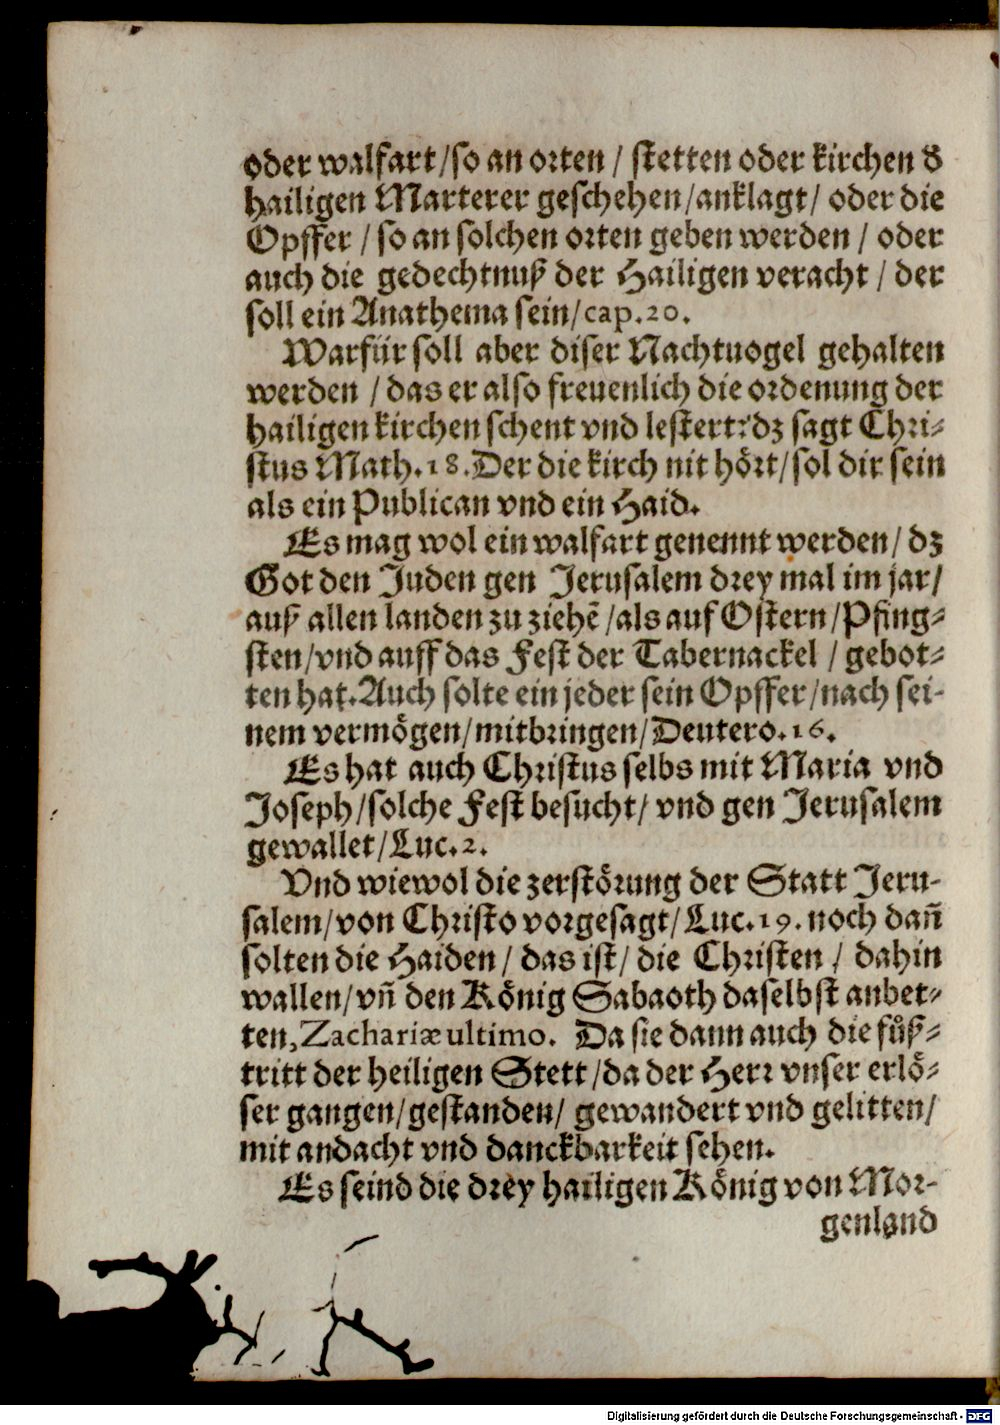 oder walfart/so an orten / stetten oder kirchen d̕
hailigen Marterer geschehen/anklagt/ oder die
Opffer / so an solchen orten geben werden / oder
auch die gedechtnuß der Hailigen veracht / der
soll ein Anathema sein/cap.20.
Warfür soll aber diser Nachtuogel gehalten
werden / das er also freuenlich die ordenung der
hailigen kirchen schent vnd lestert? dz sagt Chri-
stus Math.18. Der die kirch nit hört/sol dir sein
als ein Publican vnd ein Haid.
Es mag wol ein walfart genennt werden/ dz
Got den Juden gen Jerusalem drey mal im jar/
auß allen landen zu ziehẽ /als auf Ostern/Pfing-
sten/vnd auff das Fest der Tabernackel / gebot-
ten hat. Auch solte ein jeder sein Opffer/nach sei-
nem vermögen/mitbringen/Deutero.16.
Es hat auch Christus selbs mit Maria vnd
Joseph/solche Fest besucht/ vnd gen Jerusalem
gewallet/Luc.2.
Vnd wiewol die zerstörung der Statt Jeru-
salem/von Christo vorgesagt/Luc.19. noch dañ
solten die Haiden / das ist/ die Christen / dahin
wallen/vñ den König Sabaoth daselbst anbet-
ten, Zachariæ ultimo. Da sie dann auch die fůß-
tritt der heiligen Stett /da der Herr vnser erlö-
ser gangen/gestanden/ gewandert vnd gelitten/
mit andacht vnd danckbarkeit sehen.
Es seind die drey hailigen König von Mor-
genland
Digitalisierung gefördert durch die Deutsche Forschungsgemeinschaft - DFG